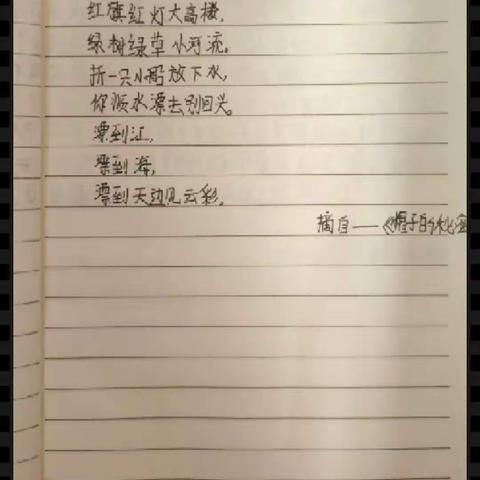 红旗红灯大高楼，
绿树绿草小河流。
折一只小船放下水，
你顺水漂去别回头。
漂到江，
漂到海，
漂到天边见云彩。
摘自——《帽子的秘密